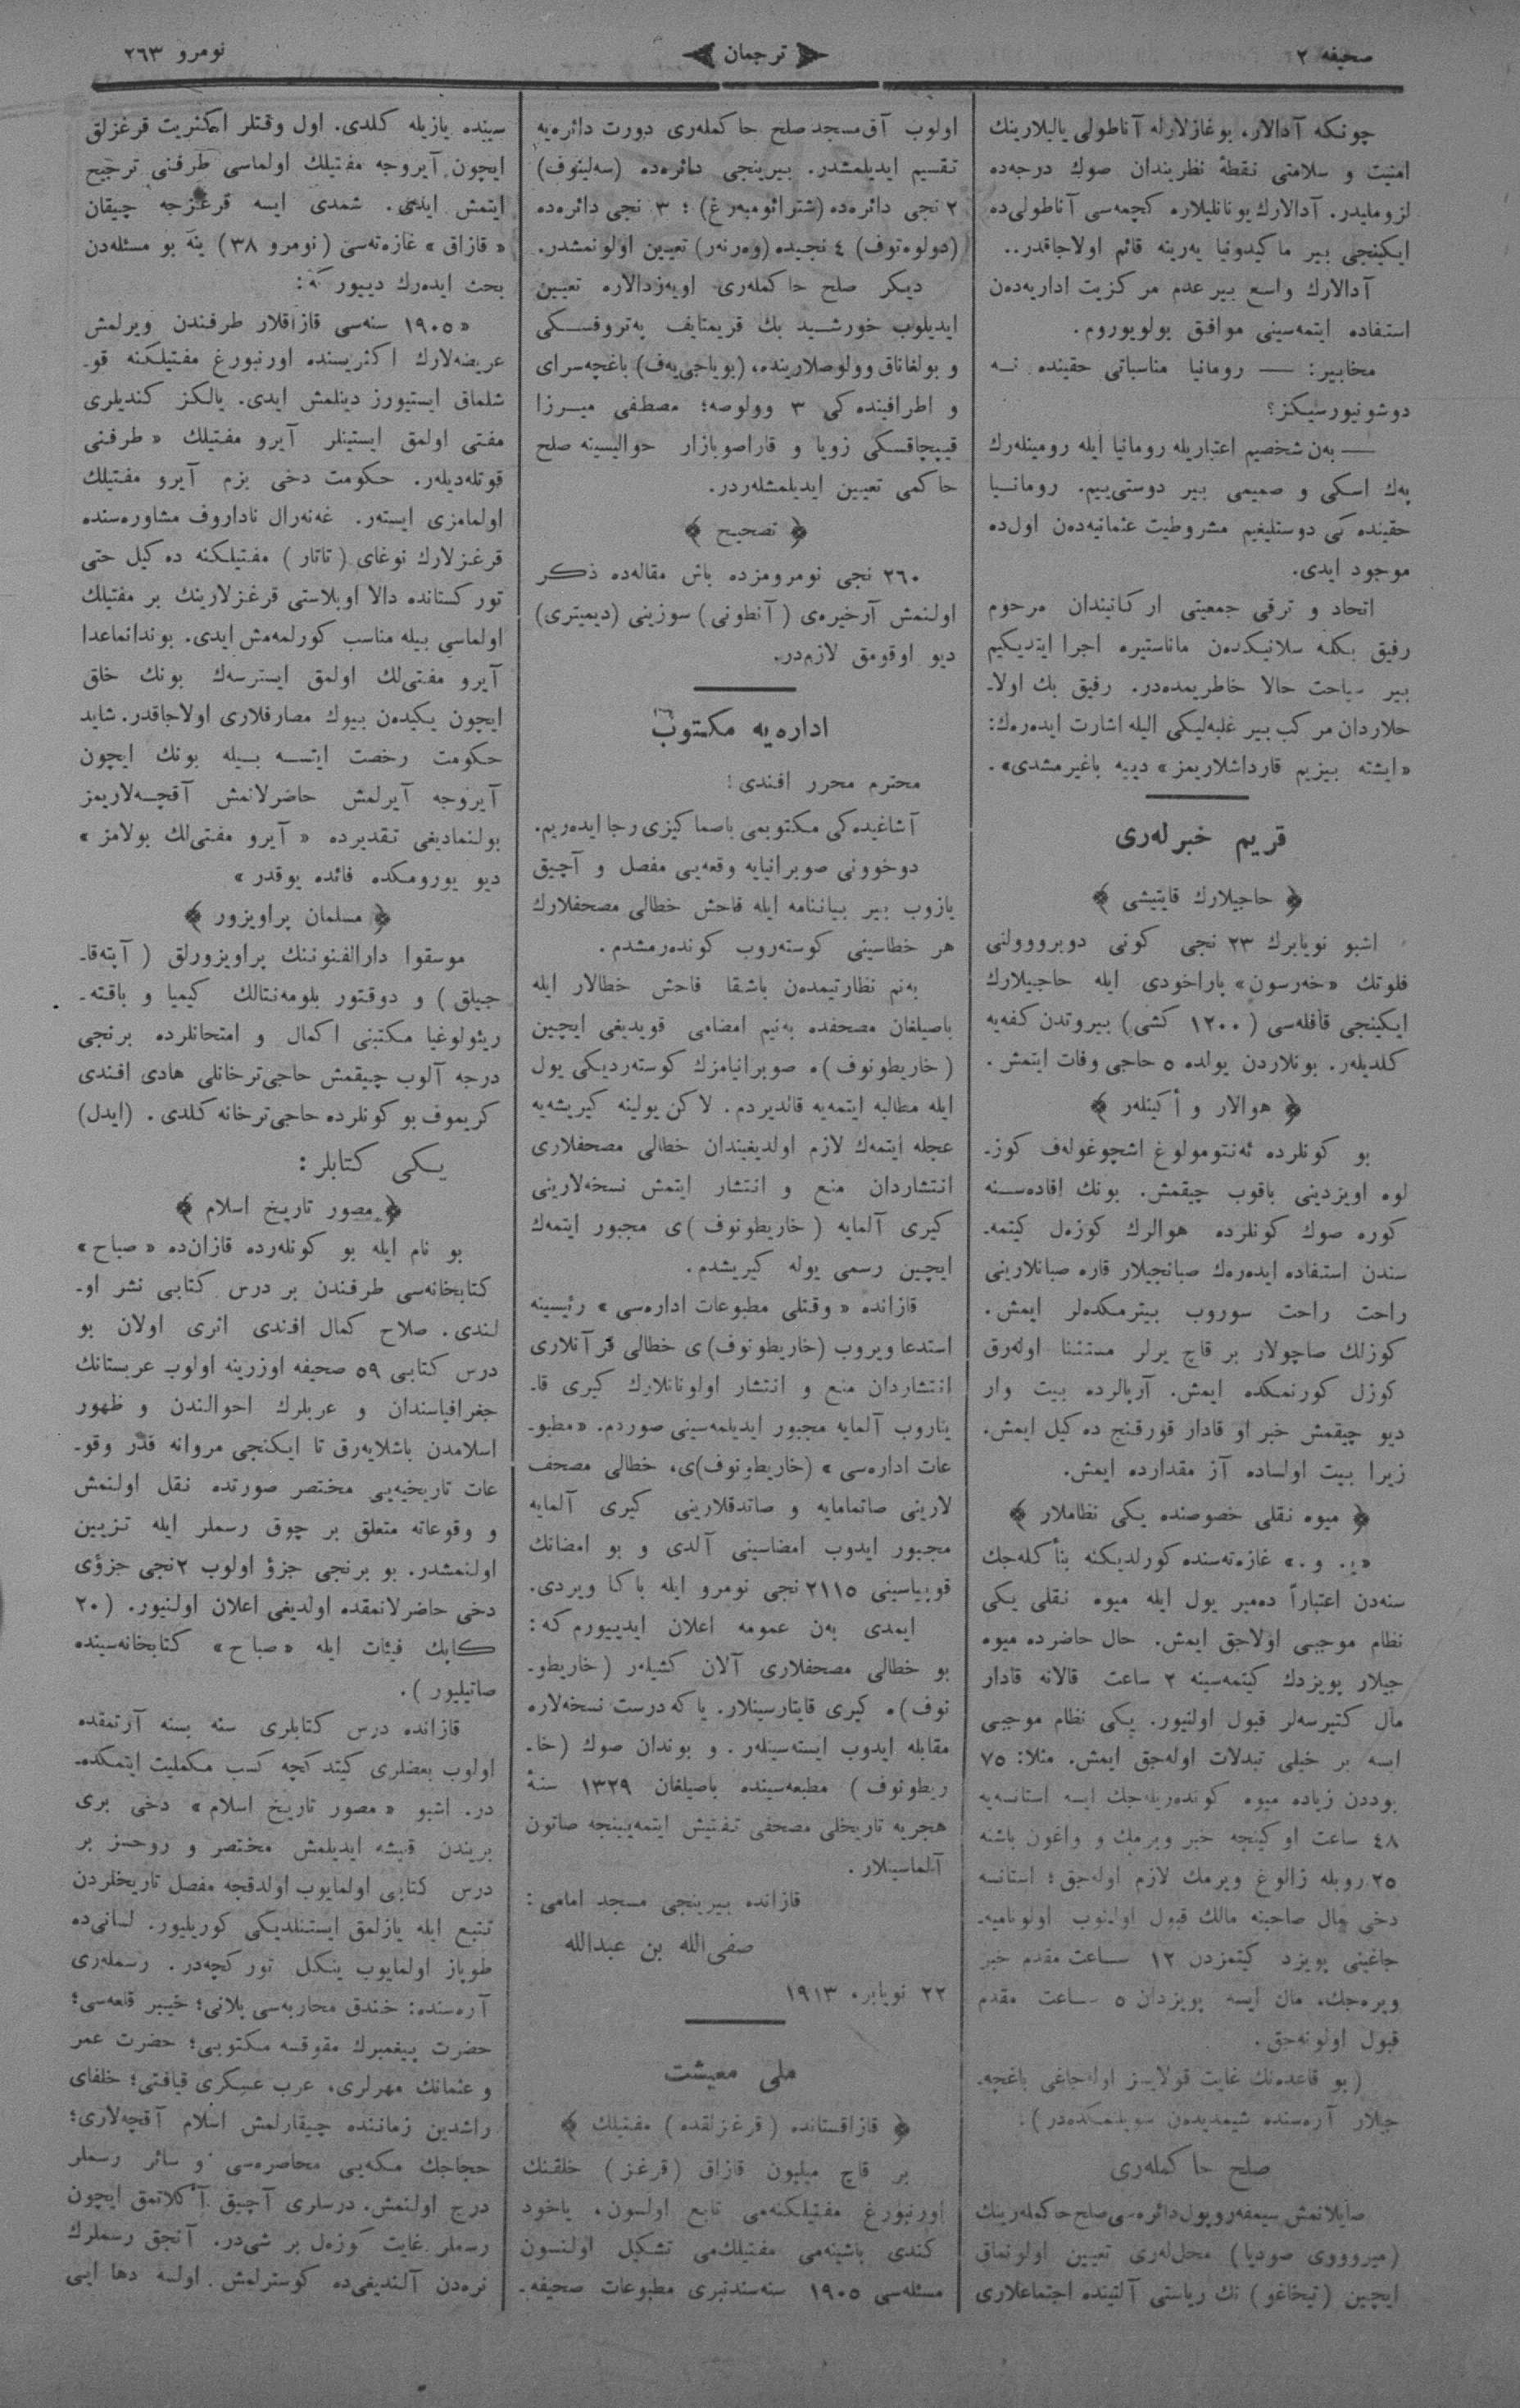 صحیفه ٢
ترجمان
نومرو ٢٦٣
چونکه آدالار، بوغازلارله آناطولی یالیلارینك
امنیت و سلامتی نقطهٔ نظریندان صوك درجه‌ده
لزوملیدر. آدالارك یونانلیلاره کچمه‌سی آناطولی‌ده
ایکینجی بیر ماکیدونیا یه‌رینه قائم اولاجاقدر..
آدالارك واسع بیر عدم مرکزیت اداریه‌دەن
استفاده ایتمه‌سینی موافق بولویوروم.
مخابیر: — رومانیا مناسباتی حقینده نـه
دوشونیورسیکز؟
— بەن شخصیم اعتباریله رومانیا ایله رومینله‌رك
پەك اسکی و صمیمی بیر دوستی‌ییم. رومانـیا
حقینده‌کی دوستلیغیم مشروطیت عثمانیه‌دەن اول‌ده
موجود ایدی.
اتحاد و ترقی جمعیتی ارکانیندان مرحوم
رفیق بکله سلانیکدەن ماناستیره اجرا ایتدیکیم
بیر سیاحت حالا خاطریمده‌در. رفیق بك اولاـ
حلاردان مرکب بیر غلبه‌لیکی الیله اشارت ایده‌رەك:
«ایشته بیزیم قارداشلاریمز» دییه باغیرمشدی».
قریم خبرله‌ری
﴿ حاجیلارك قایتیشی ﴾
اشبو نویابرك ٢٣ نجی کونی دوبرووولنی
فلوتك «خەرسون» پاراخودی ایله حاجیلارك
ایکینجی قافله‌سی (١٢٠٠ کشی) بیروتدن کفه‌یه
کلدیلەر. بونلاردن یولده ٥ حاجی وفات ایتمش.
﴿ هوالار و أکینله‌ر ﴾
بو کونلرده ئەنتومولوغ اشچوغوله‌ف کوزـ
لوه اویزدینی باقوب چیقمش. بونك افاده‌سـنه
کوره صوك کونلرده هوالرك کوزەل کیتمه‌ـ
سندن استفاده ایده‌رەك صبانجیلار قاره صبانلارینی
راحت راحت سوروب بیترمکده‌لر ایمش.
کوزلك صاچولار بر قاچ یرلر مستثنا اوله‌رق
کوزل کورنمکده ایمش. آرپالرده بیت وار
دیو چیقمش خبر او قادار قورقنج ده‌کیل ایمش.
زیرا بیت اولساده آز مقدارده ایمش.
﴿ میوه نقلی خصوصنده یکی نظاملار ﴾
«ی. و.» غازه‌ته‌سنده کورلدیکنه بنأ کله‌جك
سنه‌دن اعتباراً ده‌میر یول ایله میوه نقلی یکی
نظام موجبی اولاجق ایمش. حال حاضرده میوه
جیلار پویزدك کیتمه‌سینه ٢ ساعت قالانه قادار
مال کتیرسه‌لر قبول اولنیور. یکی نظام موجبی
ایسه بر خیلی تبدلات اوله‌جق ایمش. مثلا: ٧٥
پوددن زیاده میوه کونده‌ریله‌جك ایسه استانسه‌یه
٤٨ ساعت اوکینجه خبر ویرمك و واغون باشنه
٢٥ روبله زالوغ ویرمك لازم اوله‌جق؛ استانسه
دخی مال صاحبنه مالك قبول اولنوب اولونامیه‌ـ
جاغینی پویزد کیتمزدن ١٢ سـاعت مقدم خبر
ویره‌جك، مال ایسه پویزدان ٥ سـاعت مقدم
قبول اولونه‌جق.
(بو قاعده‌نك غایت قولایسز اولاجاغی باغچه‌ـ
جیلار آره‌سنده شیمدیدەن سویلنمکده‌در).
صلح حاکمله‌ری
صایلانمش سیمفه‌روپول دائره‌سی صلح حاکمله‌رینك
(میروووی صودیا) محل‌له‌ری تعیین اولونماق
ایچین (تیخاغو) نك ریاستی آلتینده اجتماعلاری
اولوب آق‌مسجد صلح حاکمله‌ری دورت دائره‌یه
تقسیم ایدیلمشدر. بیرینجی دائره‌ده (سه‌لینوف)
٢ نجی دائره‌ده (شترائومبەرغ) ؛ ٣ نجی دائره‌ده
(دولوه‌توف) ٤ نجیده (وەرنەر) تعیین اولونمشدر.
دیکر صلح حاکمله‌ری اویه‌زدالاره تعیین
ایدیلوب خورشـید بك قریمتایف یه‌تروفسـکی
و بولغاناق وولوصلارینده، (بویاجی‌یەف) باغچه‌سرای
و اطرافینده‌کی ٣ وولوصه؛ مصطفی میـرزا
قیپچاقسکی زویا و قاراصوبازار حوالیسینه صلح
حاکمی تعیین ایدیلمشله‌ردر.
﴿ تصحیح ﴾
٢٦٠ نجی نومرومزده باش مقاله‌ده ذکـر
اولنمش آرخیره‌ی (آنطونی) سوزینی (دیمیتری)
دیو اوقومق لازم‌در.
اداره‌یه مکتوب
محترم محرر افندی!
آشاغیده‌کی مکتوبمی باصماکیزی رجا ایده‌ریم.
دوخوونی صوبرانیایه وقعه‌یی مفصل و آچیق
یازوب بیر بیاننامه ایله فاحش خطالی مصحفلارك
هر خطاسینی کوسته‌روب کونده‌رمشدم.
بەنم نظارتیمدەن باشقا فاحش خطالار ایله
باصیلغان مصحفده بەنیم امضامی قویدیغی ایچین
(خاریطونوف)ه صوبرانیامزك کوسته‌ردیکی یول
ایله مطالبه ایتمه‌یه قالدیردم. لاکن یولینه کیریشه‌یه
عجله ایتمەك لازم اولدیغیندان خطالی مصحفلاری
انتشاردان منع و انتشار ایتمش نسخه‌لارینی
کیری آلمایه (خاریطونوف)ی مجبور ایتمەك
ایچین رسمی یوله کیریشدم.
قازانده «وقتلی مطبوعات اداره‌سی» رئیسینه
استدعا ویروب (خاریطونوف)ی خطالی قرآنلاری
انتشاردان منع و انتشار اولونانلارك کیری قاـ
یتاروب آلمایه مجبور ایدیلمه‌سینی صوردم. «مطبوـ
عات اداره‌سی» (خاریطونوف)ی، خطالی مصحف
لارینی صاتمامایه و صاتدقلارینی کیری آلمایه
مجبور ایدوب امضاسینی آلدی و بو امضانك
قوپیاسینی ٢١١٥ نجی نومرو ایله باکا ویردی.
ایمدی بەن عمومه اعلان ایدییورم که:
بو خطالی مصحفلاری آلان کشیلەر (خاریطوـ
نوف)ه کیری قایتارسینلار. یاکه درست نسخه‌لاره
مقابله ایدوب ایسته‌سینلەر. و بوندان صوك (خاـ
ریطونوف) مطبعه‌سینده باصیلغان ١٣٢٩ سنهٔ
هجریه تاریخلی مصحفی تفتیش ایتمه‌یینجه صاتون
آلماسینلار.
قازانده بیرینجی مسجد امامی:
صفی‌الله بن عبدالله
٢٢ نویابر، ١٩١٣
ملی معیشت
﴿ قازاقستانده (قرغزلقده) مفتیلك ﴾
بر قاچ میلیون قازاق (قرغز) خلقنك
اورنبورغ مفتیلکنه‌می تابع اولسون، یاخود
کندی باشینه‌می مفتیلك‌می تشکیل اولنسون
مسئله‌سی ١٩٠٥ سنه‌سندنبری مطبوعات صحیفه‌ـ
سینده یازیله کلدی. اول وقتلر اکثریت قرغزلق
ایچون آیروجه مفتیلك اولماسی طرفنی ترجیح
ایتمش ایدی. شمدی ایسه قرغزجه چیقان
«قازاق» غازه‌ته‌سی (نومرو ٣٨) ینه بو مسئله‌دن
بحث ایده‌رك دییور که:
«١٩٠٥ سنه‌سی قازاقلار طرفندن ویرلمش
عریضه‌لارك اکثریسنده اورنبورغ مفتیلکنه قوـ
شلماق ایستیورز دینلمش ایدی. یالکز کندیلری
مفتی اولمق ایستینلر آیرو مفتیلك «طرفنی
قوتله‌دیلەر. حکومت دخی بزم آیرو مفتیلك
اولمامزی ایسته‌ر. غەنەرال ناداروف مشاوره‌سنده
قرغزلارك نوغای (تاتار) مفتیلکنه ده‌کیل حتی
تورکستانده دالا اوبلاستی قرغزلارینك بر مفتیلك
اولماسی بیله مناسب کورلمه‌مش ایدی. بوندانماعدا
آیرو مفتی‌لك اولمق ایسترسه‌ك بونك خلق
ایچون یکیدەن بیوك مصارفلاری اولاجاقدر. شاید
حکومت رخصت ایتسـه بـیله بونك ایچون
آیروجه آیرلمش حاضرلانمش آقچـه‌لاریمز
بولنمادیغی تقدیرده «آیرو مفتی‌لك بولامز»
دیو یورومکده فائده یوقدر»
﴿ مسلمان پراویزور ﴾
موسقوا دارالفنوننك پراویزورلق (آپته‌قاـ
جیلق) و دوقتور بلومه‌نتالك کیمیا و باقته‌ـ
ریئولوغیا مکتبنی اکمال و امتحانلرده برنجی
درجه آلوب چیقمش حاجی‌ترخانلی هادی افندی
کریموف بو کونلرده حاجی‌ترخانه کلدی. (ایدل)
یـکی کتابلر:
﴿ مصور تاریخ اسلام ﴾
بو نام ایله بو کونله‌رده قازان‌ده «صباح»
کتابخانه‌سی طرفندن بر درس کتابی نشر اوـ
لندی. صلاح کمال افندی اثری اولان بو
درس کتابی ٥٩ صحیفه اوزرینه اولوب عربستانك
جغرافیاسندان و عربلرك احوالندن و ظهور
اسلامدن باشلایه‌رق تا ایکنجی مروانه قدر وقوـ
عات تاریخیه‌یی مختصر صورتده نقل اولنمش
و وقوعاته متعلق بر چوق رسملر ایله تزیین
اولنمشدر. بو برنجی جزؤ اولوب ٢نجی جزؤی
دخی حاضرلانمقده اولدیغی اعلان اولنیور. (٢٠
کاپك فیئات ایله «صباح» کتابخانه‌سینده
صاتیلیور).
قازانده درس کتابلری سنه بسنه آرتمقده
اولوب بعضلری کیتدکچه کسب مکملیت ایتمکده‌ـ
در. اشبو «مصور تاریخ اسلام» دخی بری
بریندن قیشه ایدیلمش مختصر و روحسز بر
درس کتابی اولمایوب اولدقجه مفصل تاریخلردن
تتبع ایله یازلمق ایستنلدیکی کوریلیور. لسانی‌ده
طوپاز اولمایوب ینکل تورکچه‌در. رسمله‌ری
آره‌سنده: خندق محاربه‌سی پلانی؛ خیبر قلعه‌سی؛
حضرت پیغمبرك مقوقسه مکتوبی؛ حضرت عمر
و عثمانك مهرلری، عرب عسکری قیافتی؛ خلفای
راشدین زماننده چیقارلمش اسلام آقچه‌لاری؛
حجاجك مکه‌یی محاصره‌سی و سائر رسملر
درج اولنمش. درسلری آچیق آکلاتمق ایچون
رسملر غایت کوزەل بر شی‌در. آنجق رسملرك
نره‌دن آلندیغی‌ده کوسترلمش اولسه دها ایی